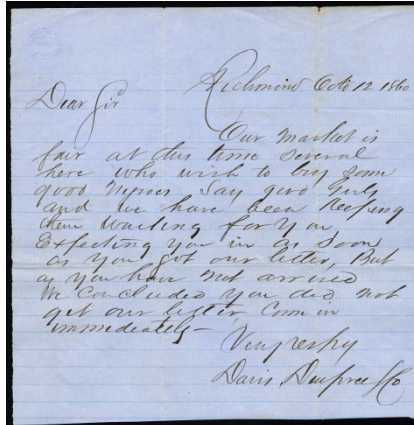 Richmond Octo 12 1860
Dear Sir
Our market is
fair at this time several
here who wish to buy some
good negroes Say good Girls
and we have been Keeping
them waiting for you,
Expecting you in as soon
as you got our letter, But
as you have not arrived
We Concluded you did not
get our letter, Come in
immediately—
Very respy
Davis, Deupree & Co